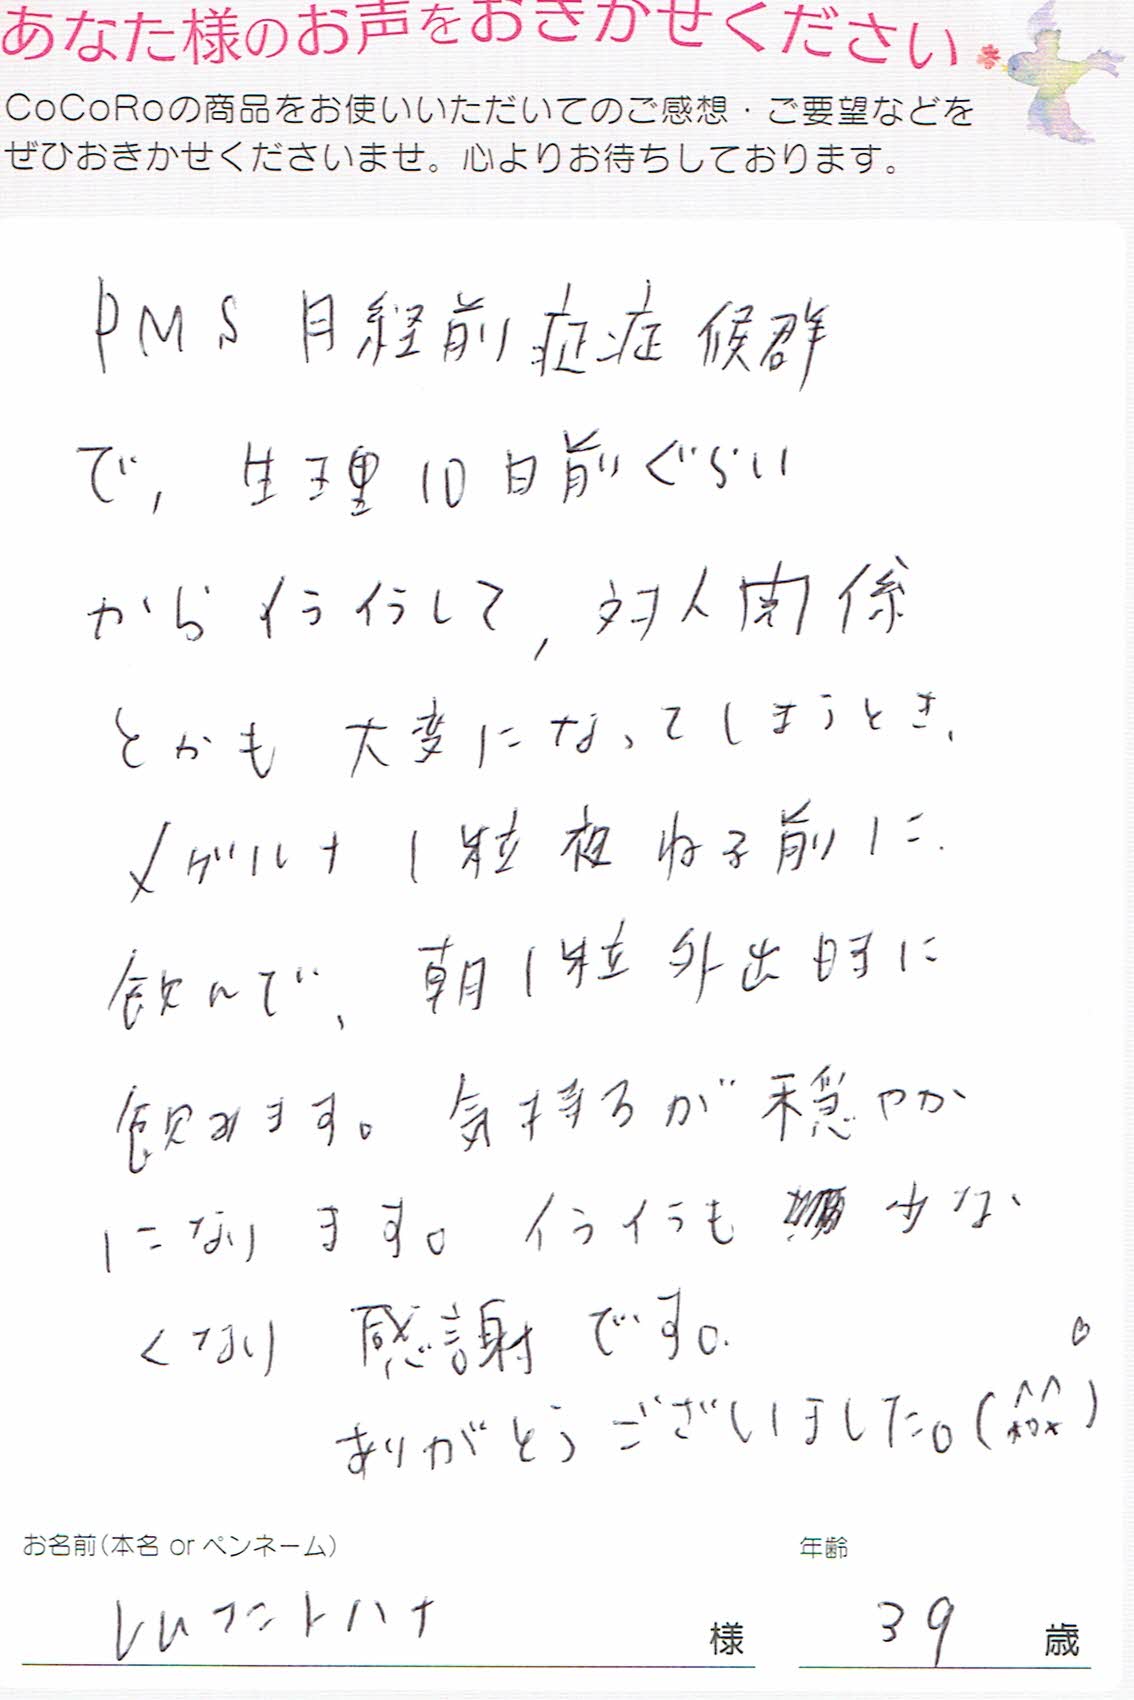 あなた様のお声をおきかせください
CoCoRoの商品をお使いいただいてのご感想・ご要望などを
ぜひおきかせくださいませ。心よりお待ちしております。
PMS 月経前症症候群
で, 生理10日前ぐらい
からイライラして, 対人関係
とかも大変になってしまうとき、
メグルナ1粒夜ねる前に、
飲んで、朝1粒外出時に
飲みます。気持ちが穏やか
になります。イライラも 少な
くなり感謝です。
ありがとうございました。(^^)
お名前(本名 or ペンネーム) 年齢
様 39 歳